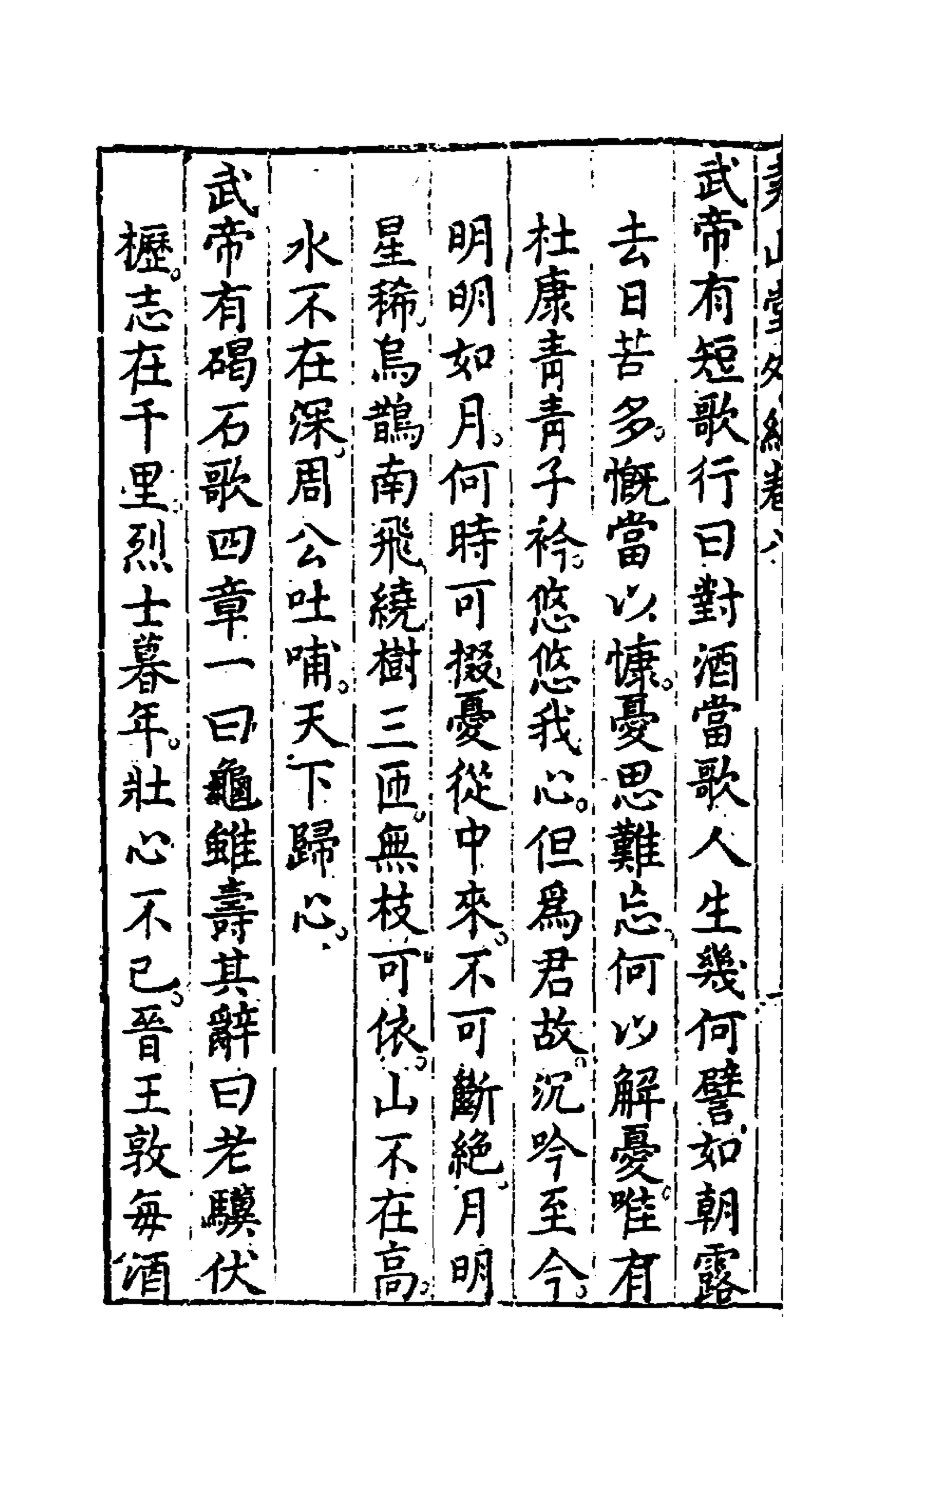 堂外紀卷八
武帝有短歌行曰對酒當歌人生幾何譬如朝露
去日苦多慨當以慷憂思難忘何以解憂唯有
杜康青青子衿悠悠我心但爲君故沉吟至今
明明如月何時可掇憂從中來不可斷絶月明
星稀烏鵲南飛繞樹三匝無枝可依山不在高
水不在深周公吐哺天下歸心
武帝有碣石歌四章一曰龜雖壽其辭曰老驥伏
櫪志在千里烈士暮年壯心不已晉王敦每酒